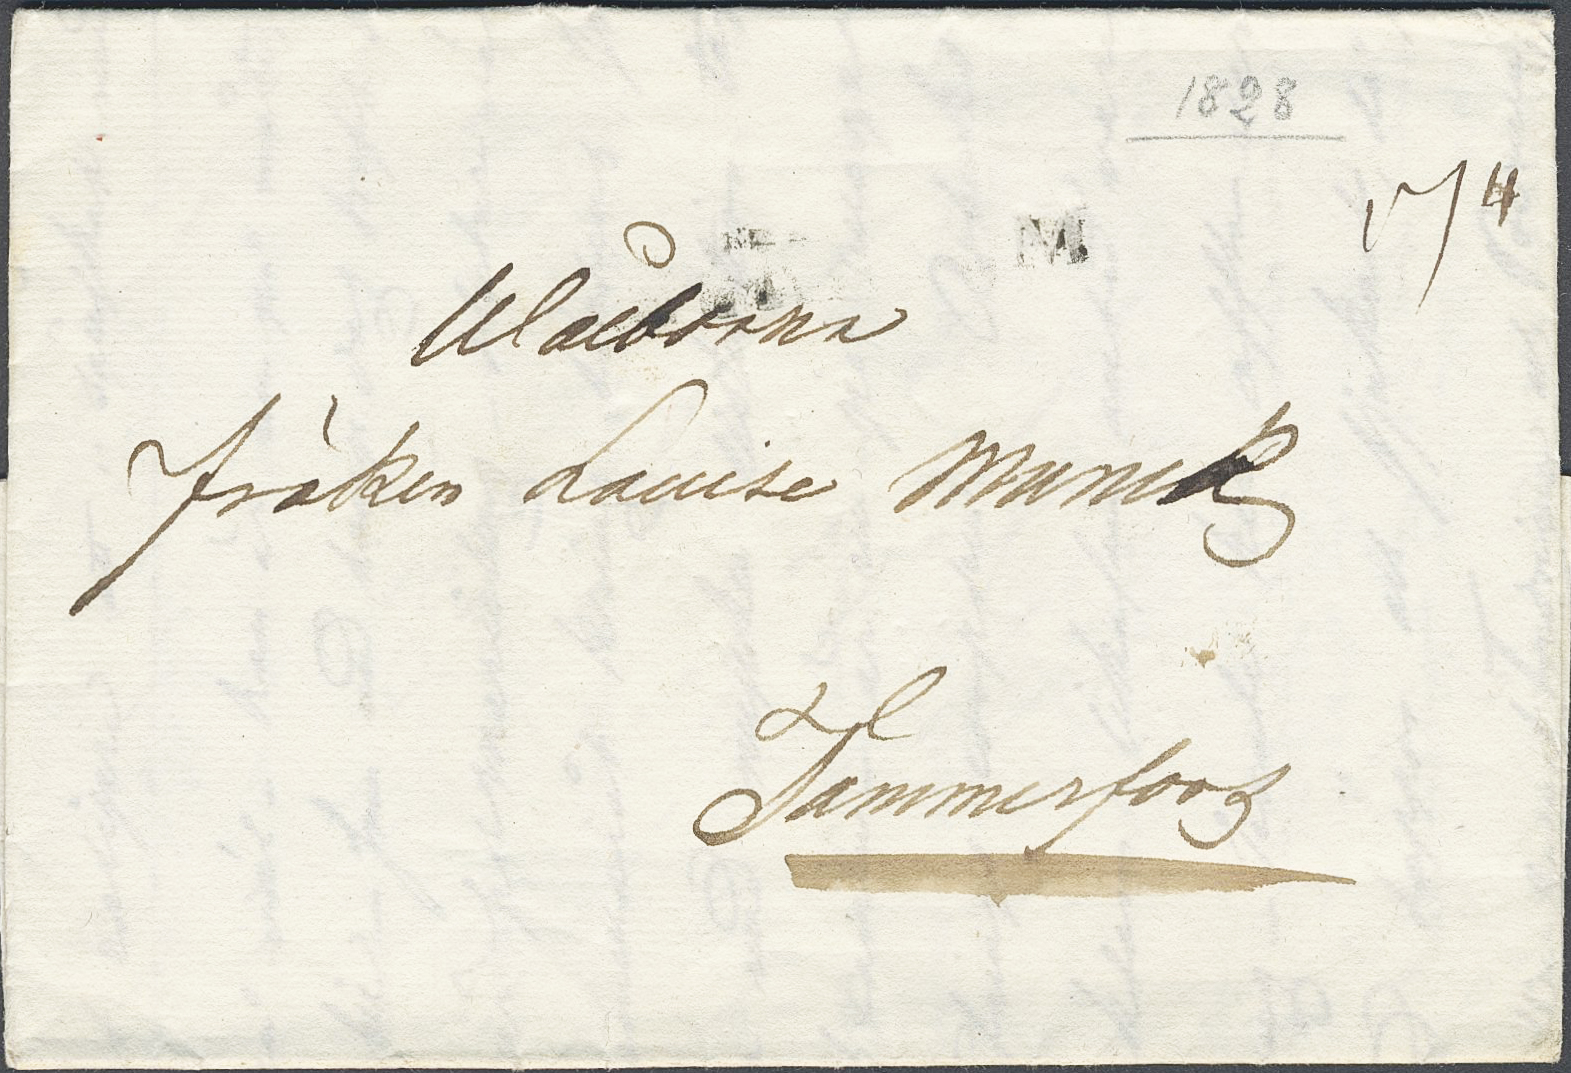 1828
Wälborna
Fröken Louise Munck
Tammerfors